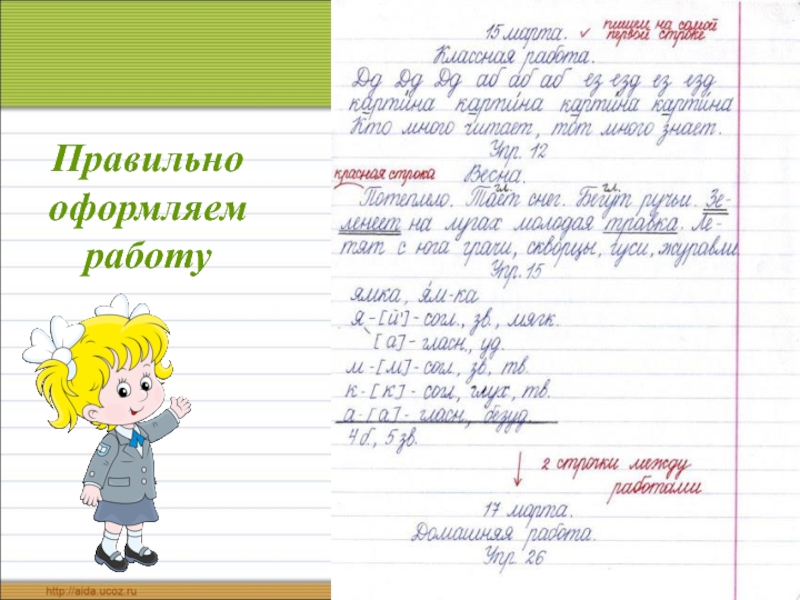 Правильно
оформляем
работу
15 марта. ✓ пишем на самой
первой строке
Классная работа.
Дд Дд Дд аб аб аб ез езд ез езд
картина картина картина картина
Кто много читает, тот много знает.
Упр. 12
красная строка Весна.
гл. гл.
Потеплело. Тает снег. Бегут ручьи. Зе-
ленеет на лугах молодая травка. Ле-
тят с юга грачи, скворцы, гуси, журавли.
Упр. 15
ямка, я́м-ка
я - [й'] - согл., зв., мягк.
[а] - гласн., уд.
м - [м] - согл., зв., тв.
к - [к] - согл., глух., тв.
а - [а] - гласн., безуд.
4 б., 5 зв.
2 строчки между
работами
17 марта.
Домашняя работа.
Упр. 26
http://aida.ucoz.ru